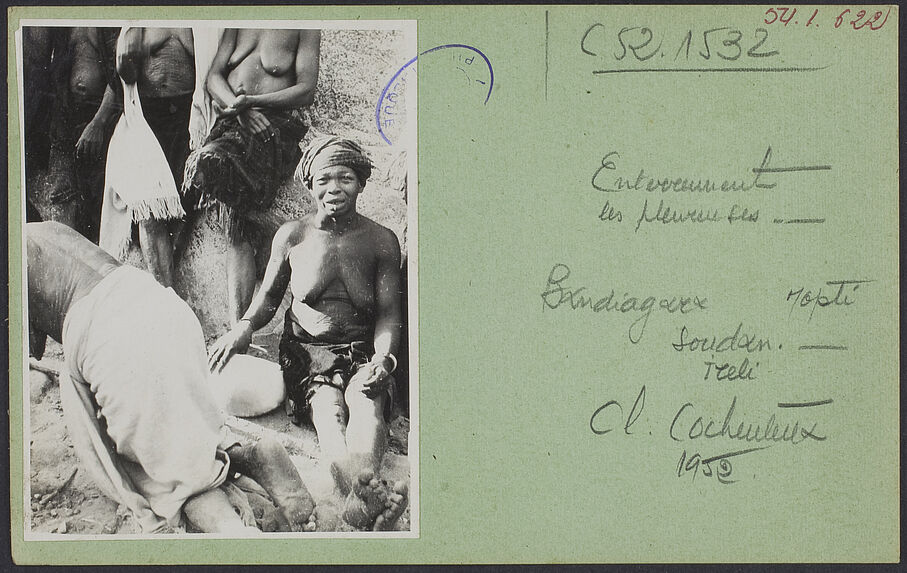 54.1.622
C52.1532
Enterrement
les pleureuses.
Bandiagara Mopti
Soudan.
Ireli
Cl. Cocheteux
1952